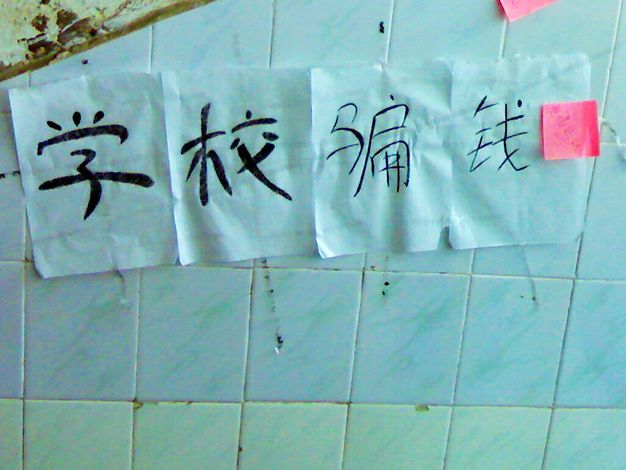 学校骗钱